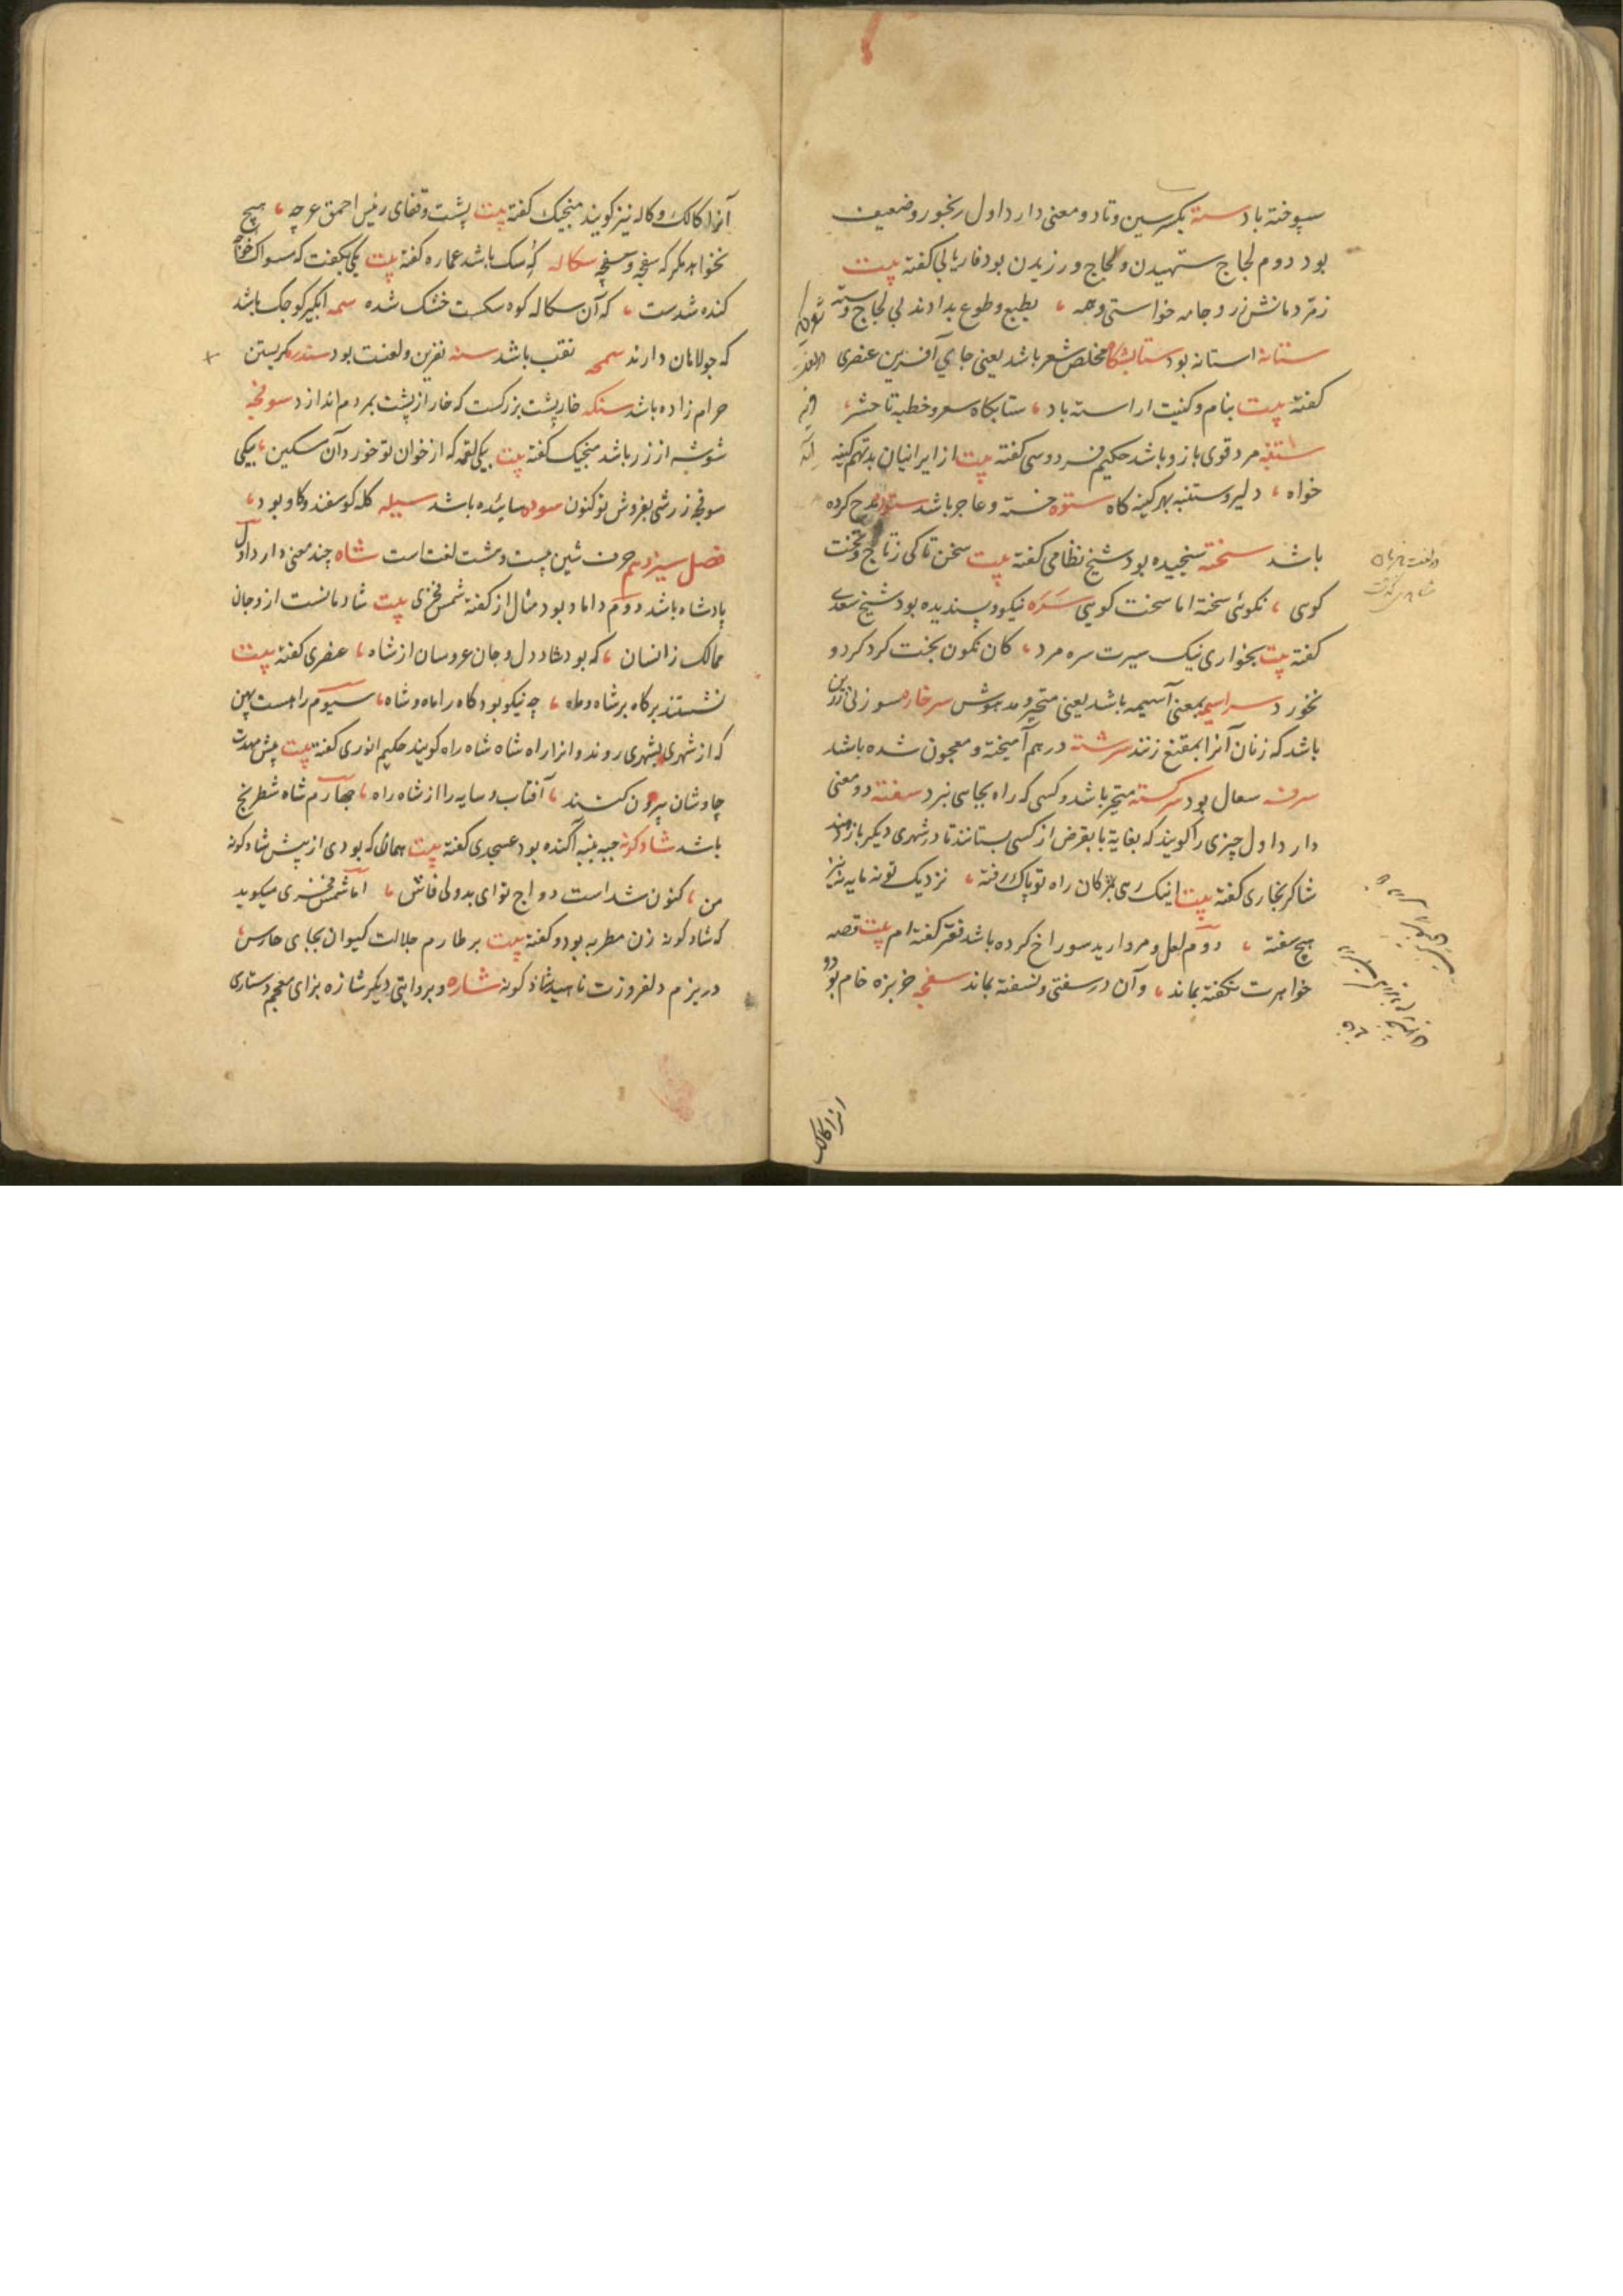 سپوخته باد سته بکسر سین و تا دو معنی دارد اول رنجور و ضعیف
بود دوم لجاج ستهیدن و لجاج ورزیدن بود فاریابی کفته بیت
زمردمانش زر و جامه خواستی وهمه ، بطبع و طوع بدادند بی لجاج و سته
ستانه استانه بود ستایشکاه مخلص شعر باشد یعنی جای آفرین عنصری
کفته بیت بنام و کنیت اراسته باد ، ستایکاه سعر و خطبه تا حشر ،
ستنبه مرد قوی بازو باشد حکیم فردوسی کفته بیت از ایرانیان بد تهم کینه
خواه ، دلیر و ستنبه بهر کینه کاه ستوه خسته و عاجز باشد ستوده مدح کرده
باشد سخته سنجیده بود شیخ نظامی کفته بیت سخن تاکی ز تاج و تخت
کوی ، نکوئی سخته اما سخت کویی سره نیکو و پسندیده بود شیخ سعدی
کفته بیت بخواری نیک سیرت سره مرد ، کان نکون بخت کرد کرد و
نخورد سراسیمه بمعنی آسیمه باشد یعنی متحیر و مدهوش سرخاره سوزنی زرین
باشد که زنان آنرا بمقنع زنند سرشته درهم آمیخته و معجون شده باشد
سرفه سعال بود سرکشته متحیر باشد و کسی که راه بجایی نبرد سفته دو معنی
دارد اول چیزی را کویند که بغایة با بقرض از کسی بستانند تا در شهری دیکر باز دهند
شاکر بخاری کفته بیت اینک رهی بمژکان راه تو پاک رفته ، نزدیک تو نه مایه نه نیز
هیچ سفته ، دوم لعل و مروارید سوراخ کرده باشد فقیر کفته ام بیت قصه
خواهرت نکفته بماند ، وآن در سفتی و نسفته بماند سفجه خربزه خام بود و
انرا کالک
آنرا کالک و کاله نیز کویند منجیک کفته بیت پشت و قفای رئیس احمق غرچه ، هیچ
نخواهد مکر که سفجه و سفجه سکاله که سک باشد عماره کفته بیت یکی بکفت که مسواک خواجه
کنده شدست ، که آن سکاله کوه سکست خشک شده سمه ابکیر کوچک باشد
که جولاهان دارند سمجه نقب باشد سنه نفرین و لعنت بود سندره کربستن
حرام زاده باشد سنکه خارپشت بزرکست که خار از پشت بمردم اندازد سوفجه
شوشه از زر باشد منجیک کفته بیت بیکی لقمه که از خوان تو خورد آن مسکین ، بیکی
سوفجه زرشی بفروش تو کنون سوده سائیده باشد سیله کله کوسفند و کاو بود ،
فصل سیزدهم حرف شین بیست و هشت لغت است شاه چند معنی دارد اول
پادشاه باشد دوم داماد بود مثال از کفته شمس فخری بیت شادمانست از و جان
ممالک زانسان ، که بود شاد دل و جان عروسان از شاه ، عنصری کفته بیت
نشستند برکاه بر شاه و ماه ، چه نیکو بود کاه را ماه و شاه ، سیوم راهست پهن
که از شهری بشهری روند و انرا راه شاه شاه راه کویند حکیم انوری کفته بیت پیش مهدت
چاوشان بیرون کنند ، آفتاب و سایه را از شاه راه ، چهارم شاه شطرنج
باشد شادکونه جبه پنبه آکنده بود عسجدی کفته بیت همانی که بودی از پیش شادکونه
من ، کنون شد است دواج تو ای بدولی فاش ، اما شمس فخری میکوید
که شادکونه زن مطربه بود و کفته بیت بر طارم جلالت کیوان بجای حارس ،
در بزم دلفروزت ناهید شادکونه شاره و بروایتی دیکر شازه بزای معجم دستاری